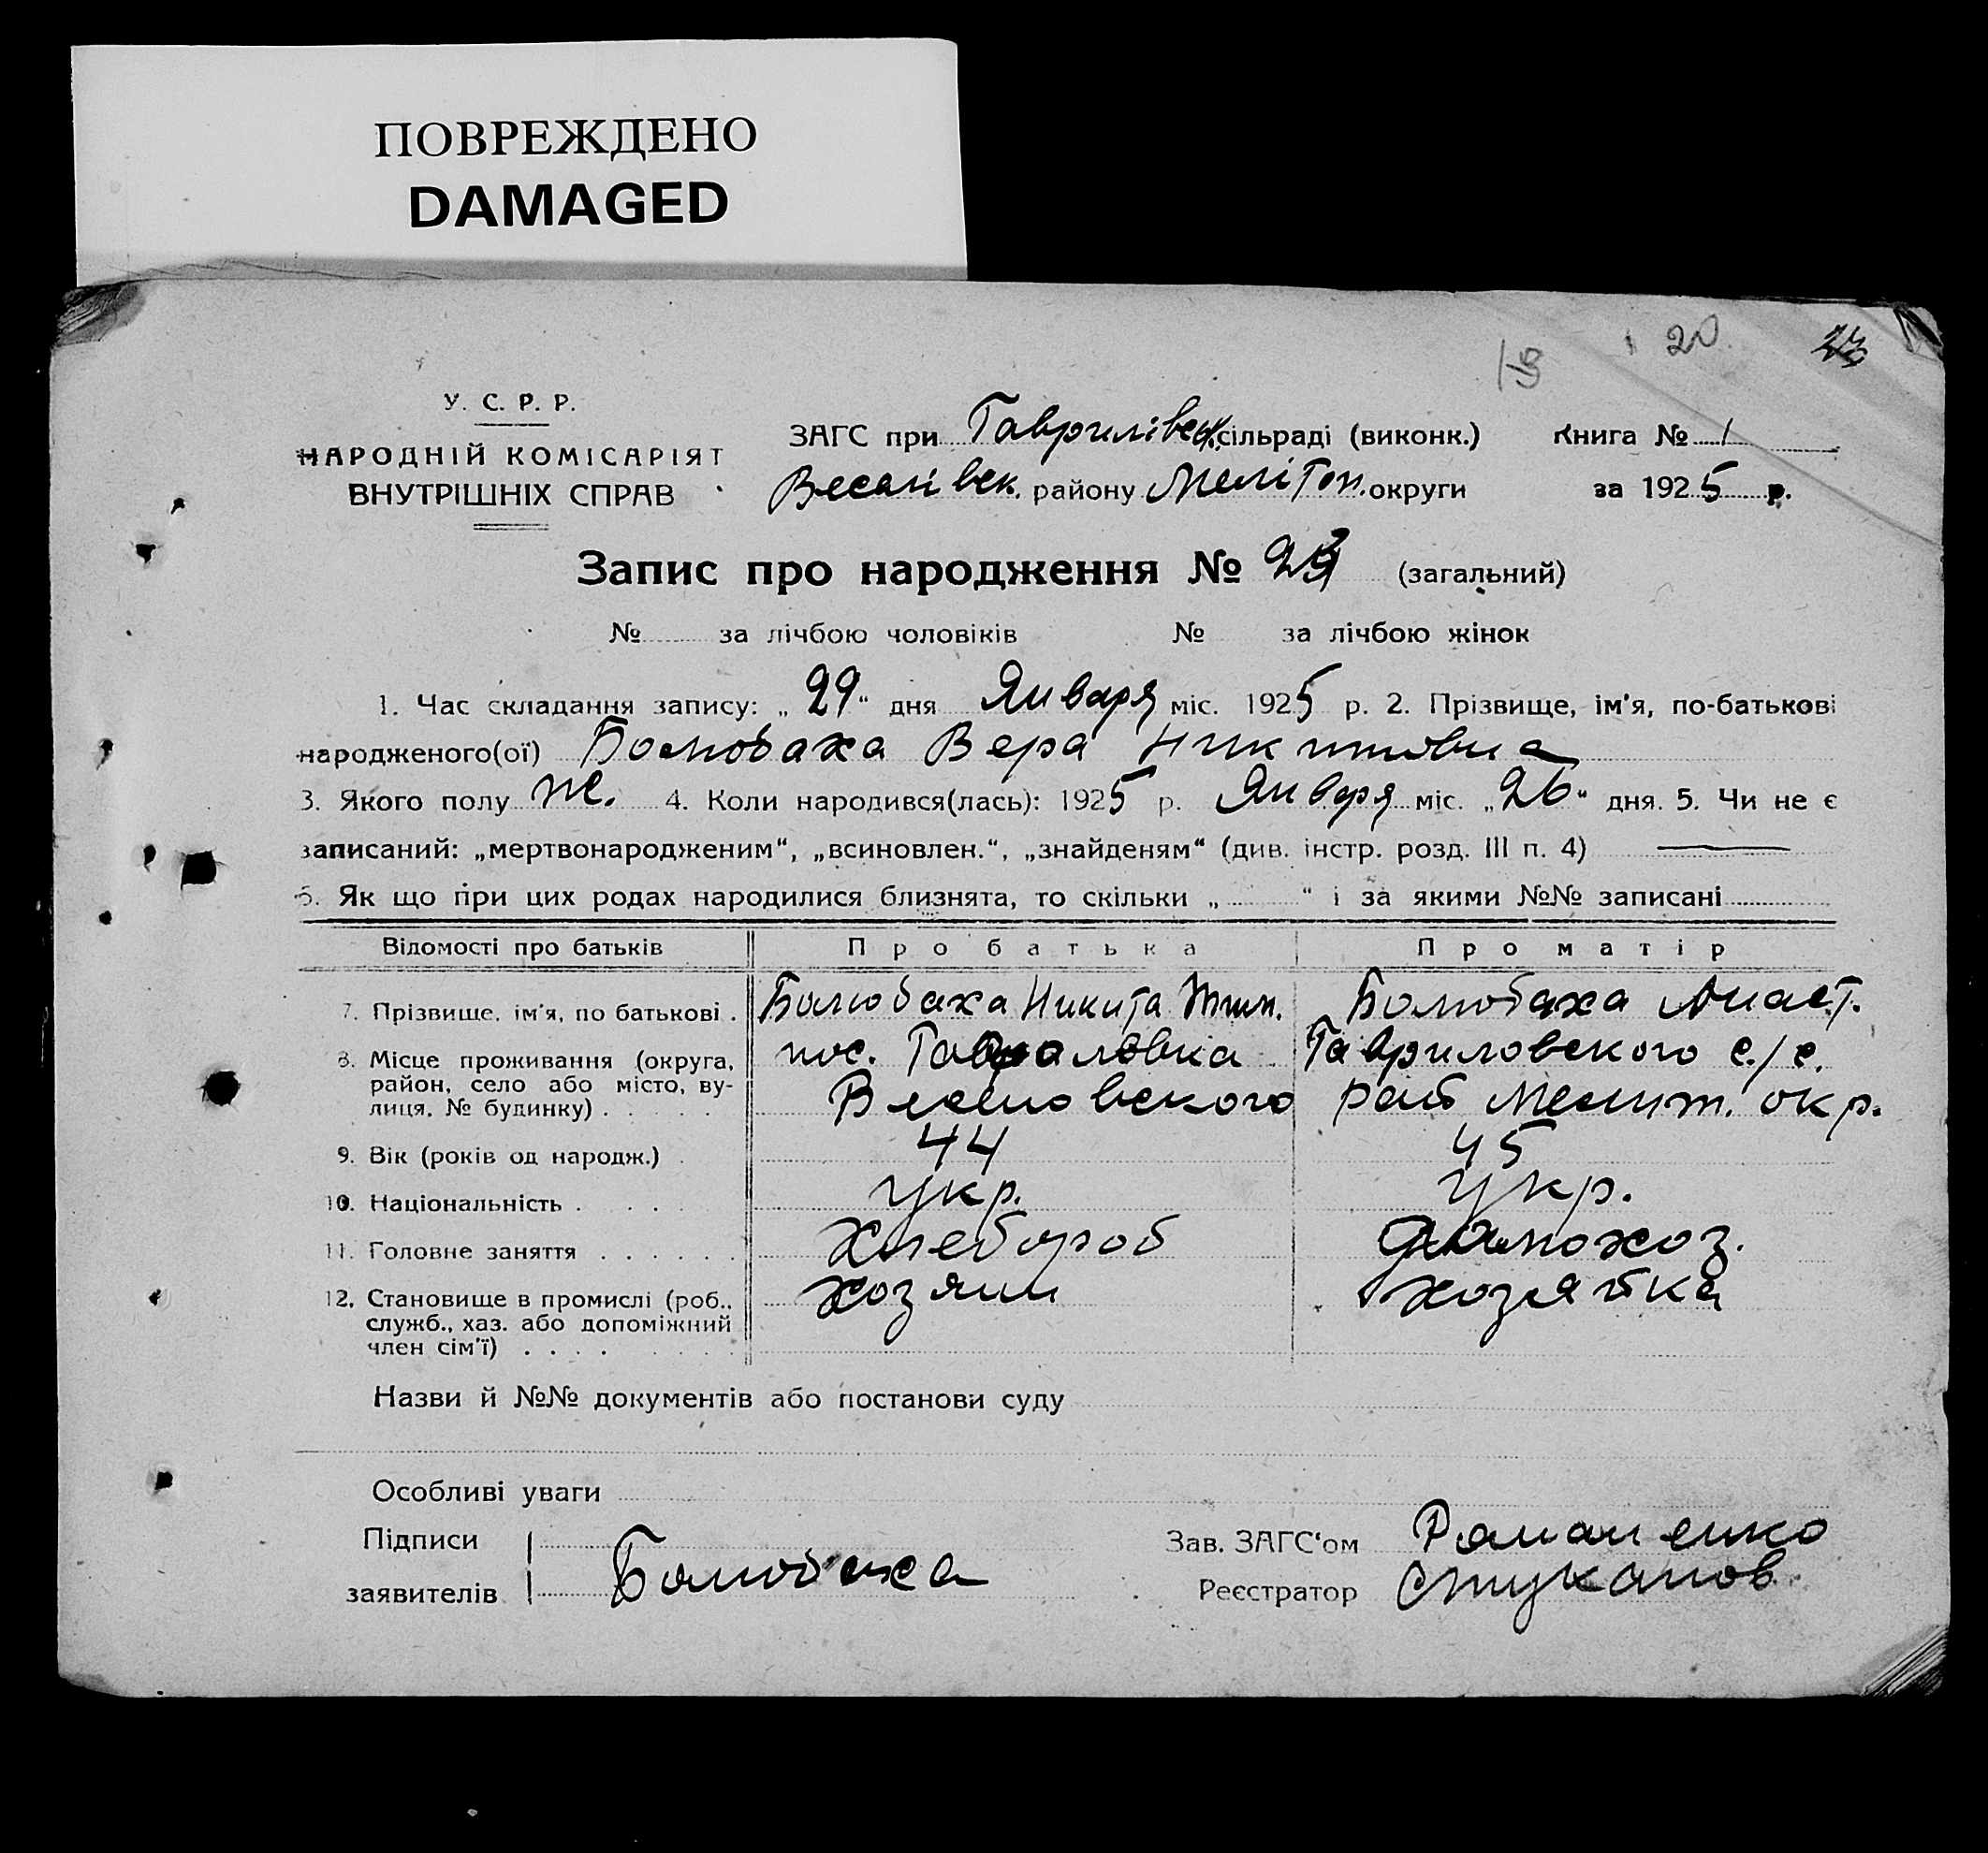 ПОВРЕЖДЕНО
DAMAGED
20
23
У. С. Р. Р.
НАРОДНІЙ КОМІСАРІЯТ
ВНУТРІШНІХ СПРАВ
ЗАГС при Гаврилівск. сільраді (виконк.) Книга № 1
Веселівск. району Мелітоп. округи за 1925 р.
Запис про народження № 23 (загальний)
№ за лічбою чоловіків № за лічбою жінок
1. Час складання запису: „29“ дня Января міс. 1925 р. 2. Прізвище, ім'я, по-батькові
народженого(ої) Болюбаха Вера Никитовна
3. Якого полу ж. 4. Коли народився(лась): 1925 р. Января міс. „26“ дня. 5. Чи не є
записаний: „мертвонародженим“, „всиновлен.“, „знайденям“ (див. інстр. розд. III п. 4) —
6. Як що при цих родах народилися близнята, то скільки „ “ і за якими №№ записані
Відомості про батьків Про батька Про матір
7. Прізвище, ім'я, по батькові . Болюбаха Никита Тим. Болюбаха Анаст.
8. Місце проживання (округа, пос. Гавриловка Гавриловского с./с.
район, село або місто, ву- Веселовского рай Мелит. окр.
лиця, № будинку) . . . . .
9. Вік (років од народж.) . 44 45
10. Національність . . . . . Укр. Укр.
11. Головне заняття . . . . . . Хлебороб домохоз.
12. Становище в промислі (роб., хозяин хозяйка
служб., хаз. або допоміжний
член сім'ї) . . . . . . . .
Назви й №№ документів або постанови суду
Особливі уваги
Підписи Зав. ЗАГС'ом Романенко
заявителів Болюбаха Реєстратор Стуканов